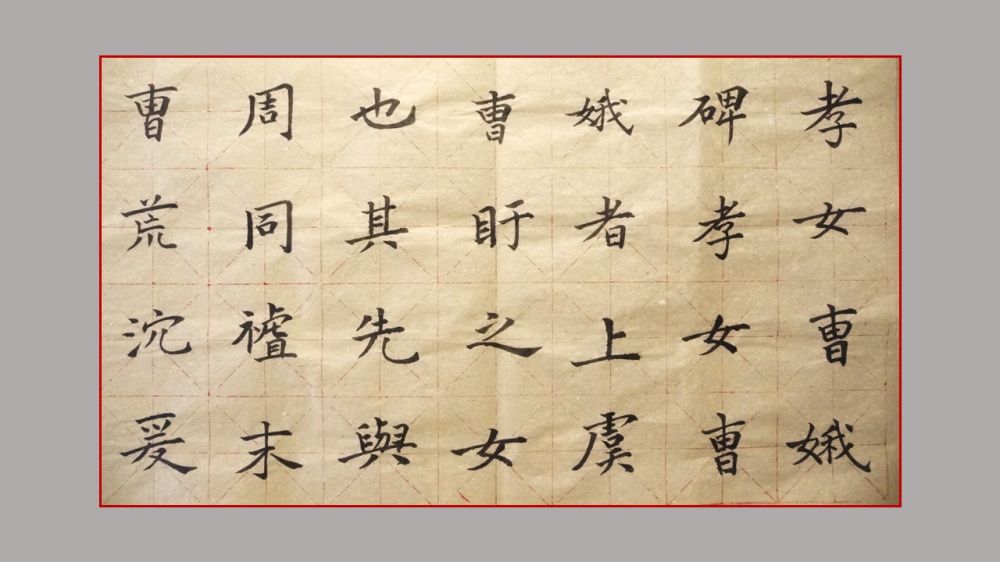 孝女曹娥
碑孝女曹
娥者上虞
曹盱之女
也其先與
周同祖末
曹荒沉爰